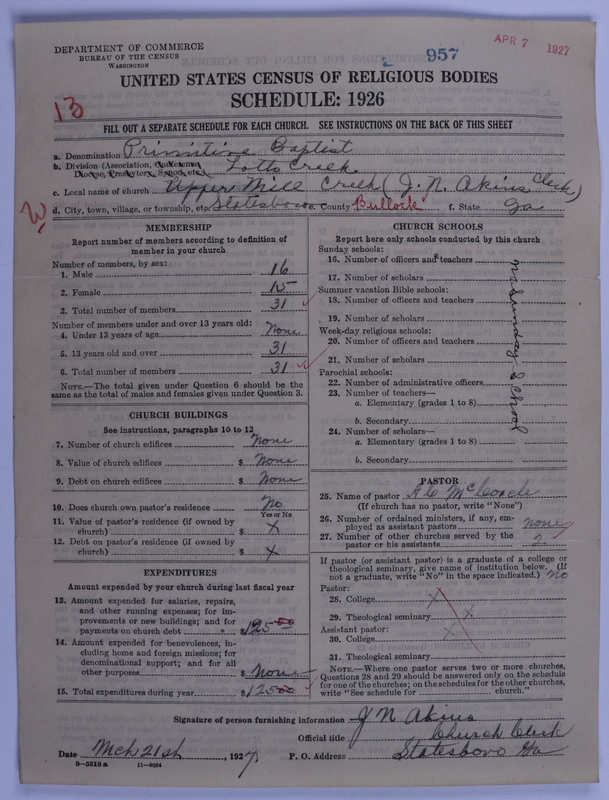 DEPARTMENT OF COMMERCE
BUREAU OF THE CENSUS
WASHINGTON
957
APR 7 1927
UNITED STATES CENSUS OF RELIGIOUS BODIES
SCHEDULE: 1926
13
FILL OUT A SEPARATE SCHEDULE FOR EACH CHURCH. SEE INSTRUCTIONS ON THE BACK OF THIS SHEET
a. Denomination Primitive Baptist
b. Division (Association, Conference, Diocese, Presbytery, Synod, etc.) Lotts Creek
c. Local name of church Upper Mill Creek (J. N. Akins Clerk)
d. City, town, village, or township, etc. Statesboro e. County Bullock f. State Ga
MEMBERSHIP
Report number of members according to definition of member in your church
Number of members, by sex:
1. Male 16
2. Female 15
3. Total number of members 31
Number of members under and over 13 years old:
4. Under 13 years of age None
5. 13 years old and over 31
6. Total number of members 31
NOTE.—The total given under Question 6 should be the same as the total of males and females given under Question 3.
CHURCH BUILDINGS
See instructions, paragraphs 10 to 12
7. Number of church edifices None
8. Value of church edifices $ None
9. Debt on church edifices $ None
10. Does church own pastor's residence No
Yes or No
11. Value of pastor's residence (if owned by church) $ X
12. Debt on pastor's residence (if owned by church) $ X
EXPENDITURES
Amount expended by your church during last fiscal year
13. Amount expended for salaries, repairs, and other running expenses; for improvements or new buildings; and for payments on church debt $ 125.00
14. Amount expended for benevolences, including home and foreign missions; for denominational support; and for all other purposes $ None
15. Total expenditures during year $ 125.00
CHURCH SCHOOLS
Report here only schools conducted by this church
Sunday schools:
16. Number of officers and teachers
17. Number of scholars
Summer vacation Bible schools:
18. Number of officers and teachers
19. Number of scholars
Week-day religious schools:
20. Number of officers and teachers
21. Number of scholars
Parochial schools:
22. Number of administrative officers
23. Number of teachers—
a. Elementary (grades 1 to 8)
b. Secondary
24. Number of scholars—
a. Elementary (grades 1 to 8)
b. Secondary
no Sunday School
PASTOR
25. Name of pastor
(If church has no pastor, write "None")
26. Number of ordained ministers, if any, employed as assistant pastors none
27. Number of other churches served by the pastor or his assistants 2
If pastor (or assistant pastor) is a graduate of a college or theological seminary, give name of institution below. (If not a graduate, write "No" in the space indicated.) no
Pastor:
28. College X
29. Theological seminary X
Assistant pastor:
30. College X
31. Theological seminary
NOTE.—Where one pastor serves two or more churches, Questions 28 and 29 should be answered only on the schedule for one of the churches; on the schedules for the other churches, write "See schedule for ........ church."
Signature of person furnishing information J N Akins
Official title Church Clerk
Date Mch 21st, 1927 P. O. Address Statesboro Ga
8—5518 a 11—9054